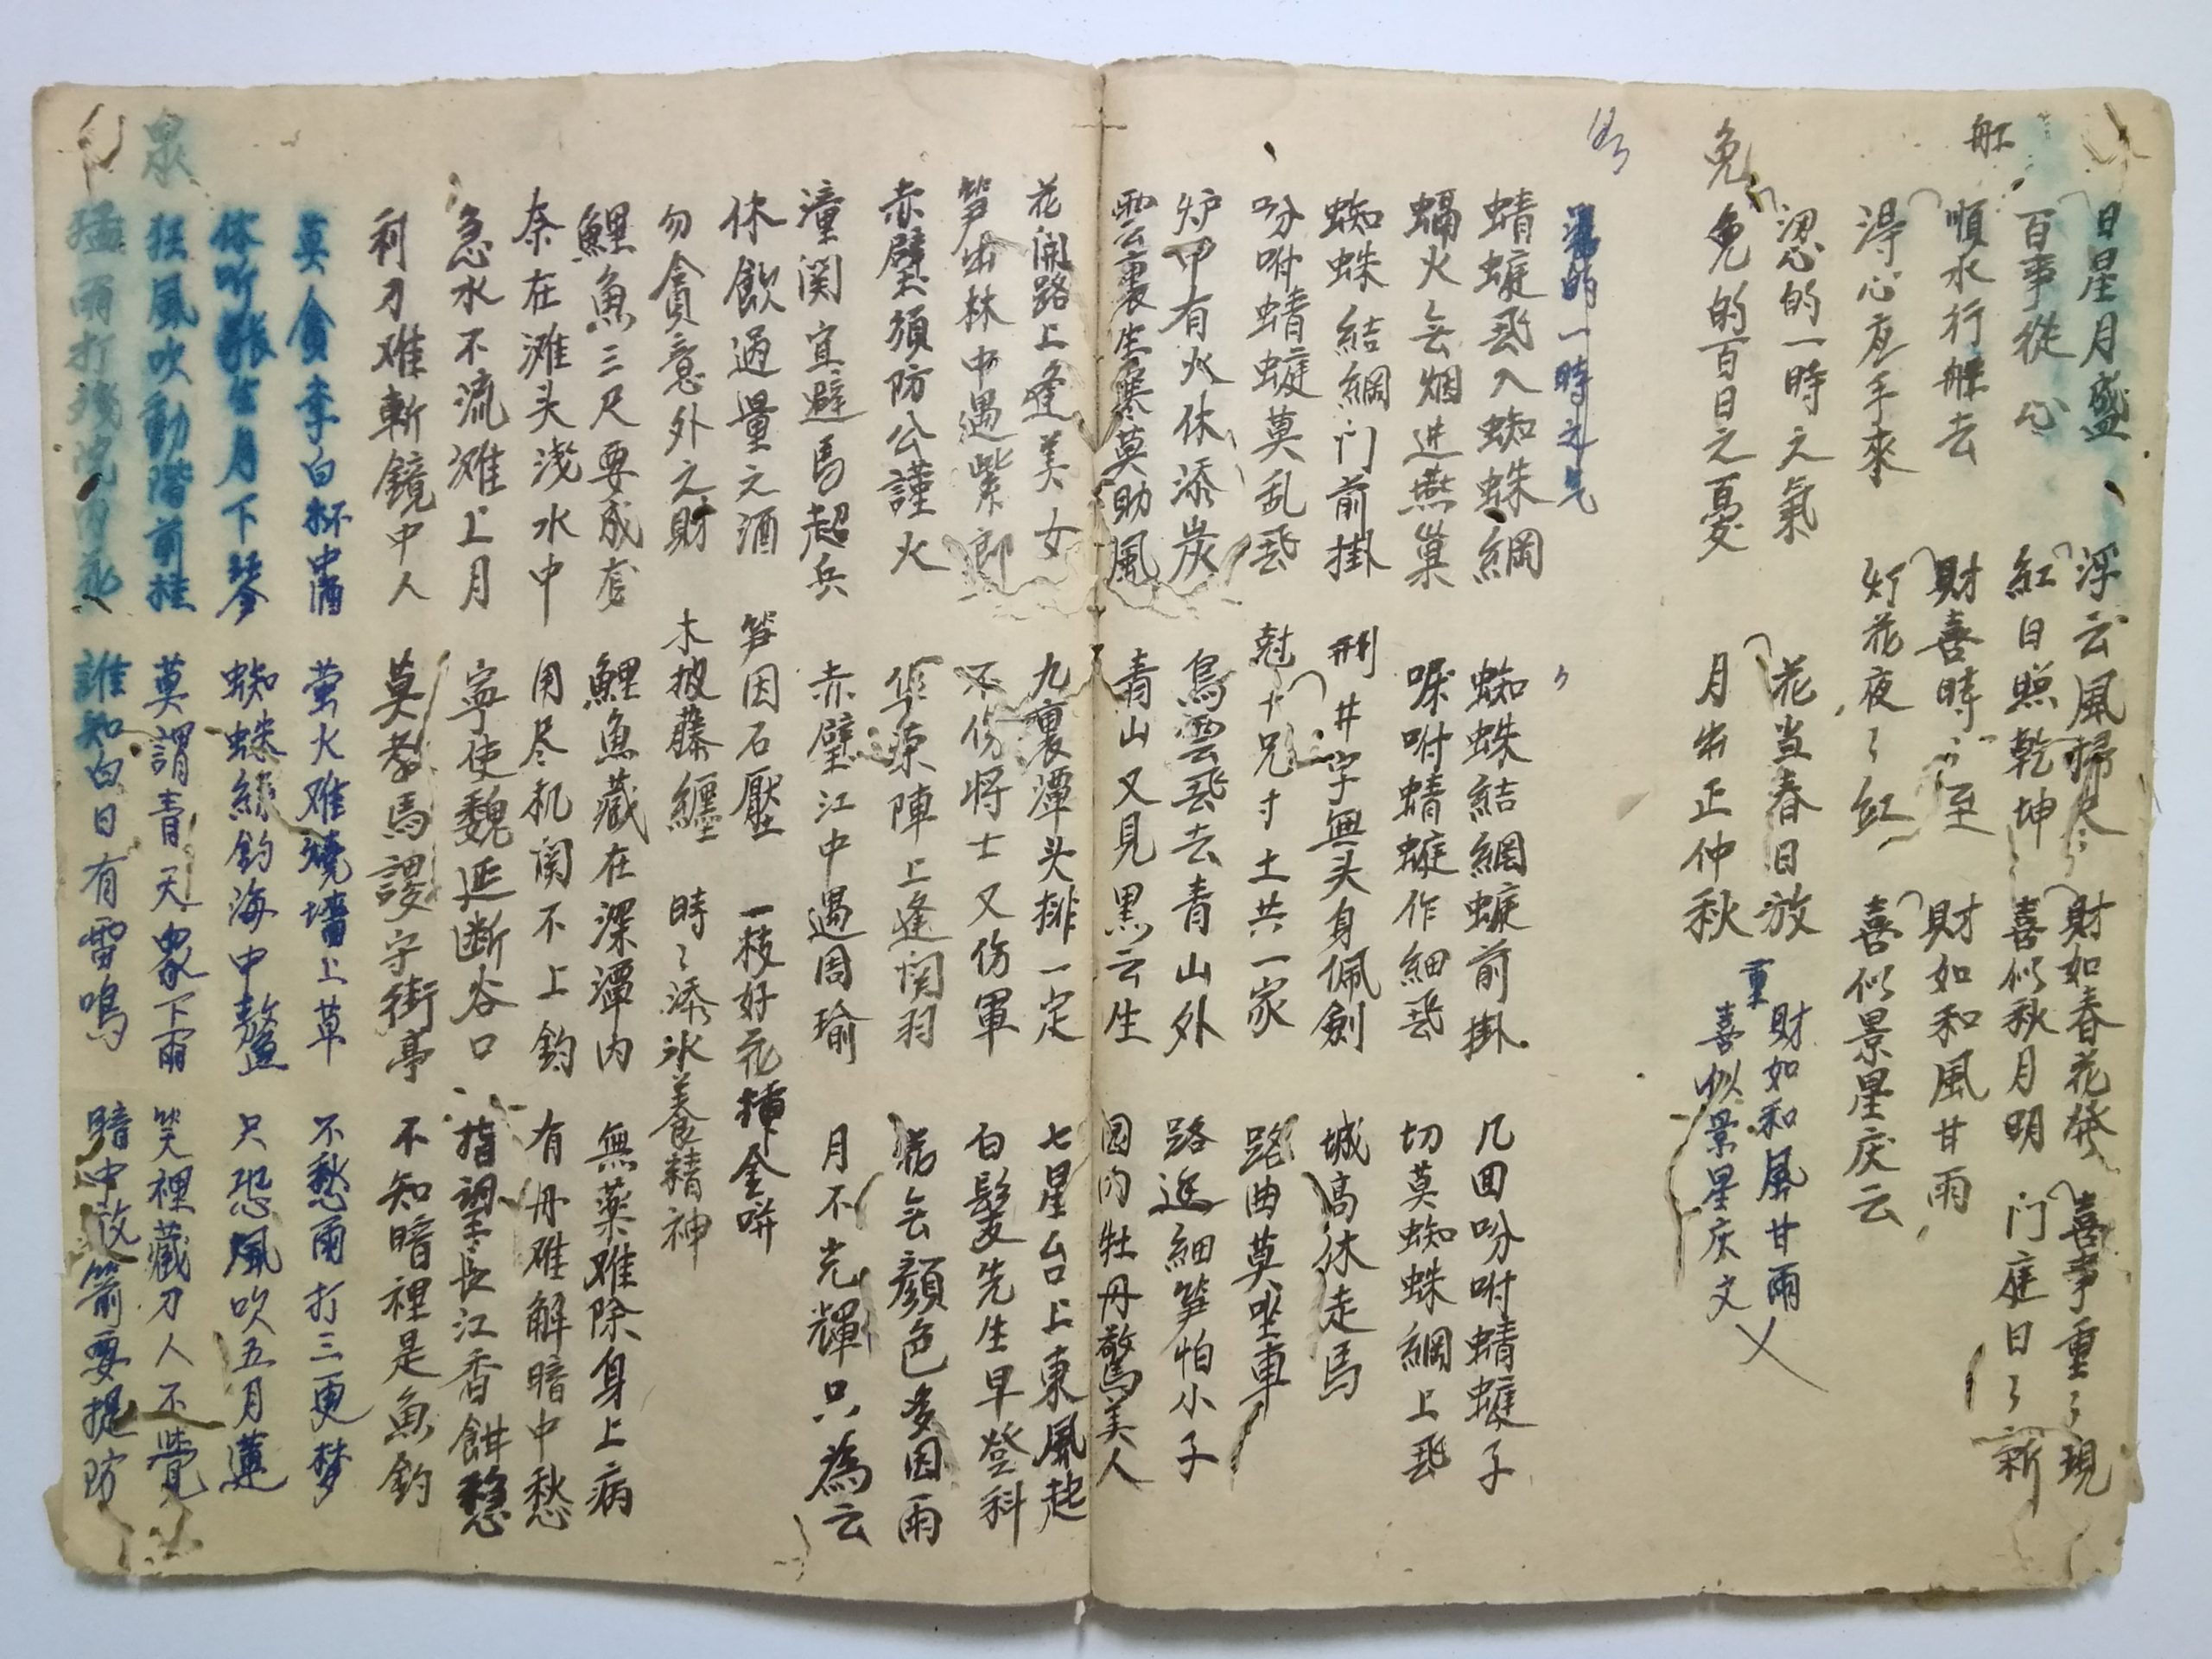 日星月盛 浮云風掃尽 財如春花發 喜事重々現
百事從心 紅日照乾坤 喜似秋月明 门庭日々新
舡
順水行舡去 財喜時々至 財如和風甘雨
得心应手來 灯花夜々紅 喜似景星庆云
忍的一時之氣 花当春日放 財如和風甘雨
重
免
免的百日之憂 月出正仲秋 喜似景星庆文
忍的一時之气
蜻蜓飛入蜘蛛網 蜘蛛結網蜓前掛 几回吩咐蜻蜓子
螢火無烟进燕巢 嘱咐蜻蜓作細飛 切莫蜘蛛網上飛
蜘蛛結網门前掛 刑井字無头身佩劍 城高休走馬
吩咐蜻蜓莫乱飛 尅十兄寸土共一家 路曲莫坐車
炉中有火休添炭 烏雲飛去青山外 路逕細筍怕小子
雲裏生寒莫助風 青山又見黑云生 园内牡丹驚美人
花開路上逢美女 九裏潭头排一定 七星台上東風起
筍出林中遇紫郎 不伤将士又伤軍 白髮先生早登科
赤壁須防公謹火 华原陣上逢関羽 無顔色多因雨
潼関宜避馬超兵 赤壁江中遇周瑜 月不光輝只為云
休飲過量之酒 筍因石壓 一枝好花插金哢
勿貪意外之財 木被藤纏 時々添氷美食精神
鯉魚三尺要成套 鯉魚藏在深潭内 無薬难除身上病
奈在滩头浅水中 用尽机関不上鈎 有丹难解暗中愁
急水不流滩上月 寧使魏延断谷口 指望長江香餌穏
利刀难斬鏡中人 莫教馬謖守街亭 不知暗裡是魚釣
莫貪李白杯中酒 萤火难燒墻上草 不愁雨打三更梦
休听張生月下琴 蜘蛛絲釣海中鰲 只恐風吹五月蓮
泉
狂風吹動階前桂 莫謂青天家下雨 笑裡藏刀人不覺
猛雨打殘院内花 誰知白日有雷鳴 暗中放箭要提防